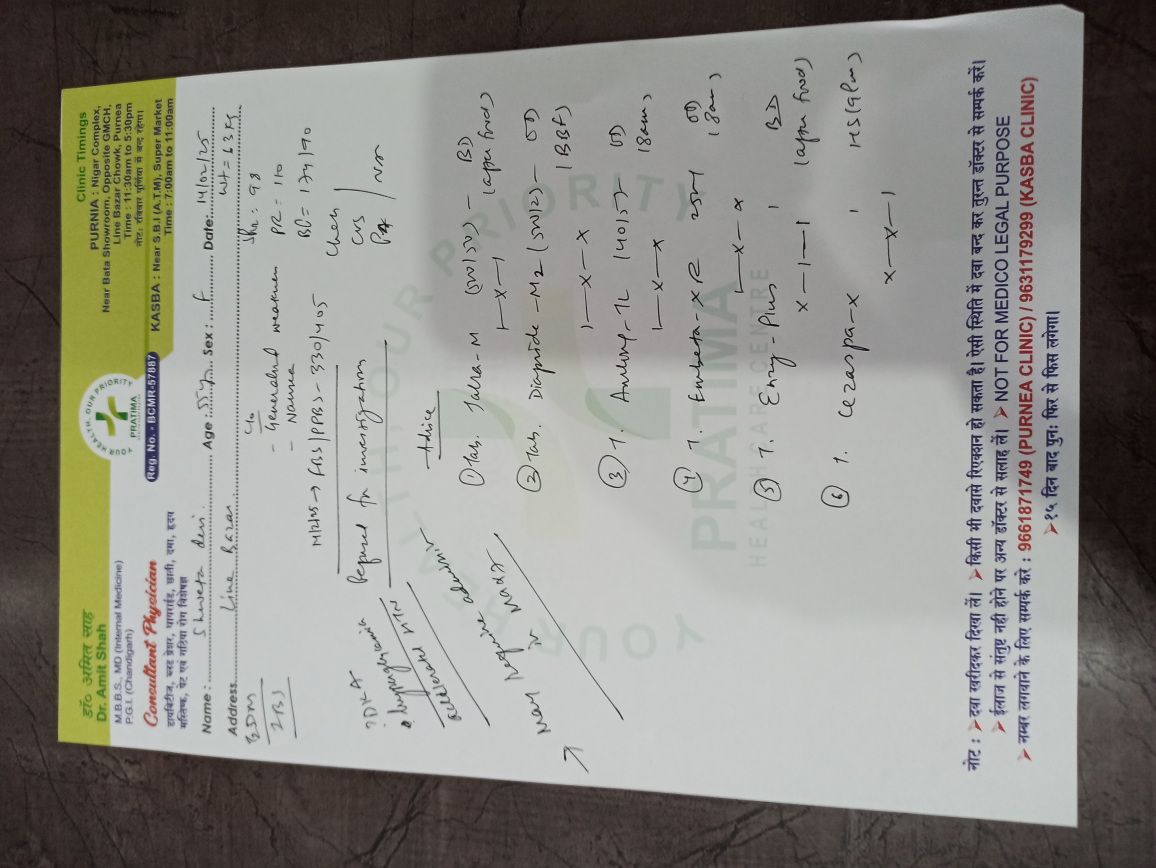 डॉ० अमित साह
Dr. Amit Shah
M.B.B.S., MD (Internal Medicine)
P.G.I. (Chandigarh)
Consultant Physician
डायबिटीज, ब्लड प्रेशर, थायराईड, छाती, दमा, हृदय
मस्तिष्क, पेट एवं गठिया रोग विशेषज्ञ
YOUR HEALTH, OUR PRIORITY
PRATIMA
Reg. No. - BCMR-57887
Clinic Timings
PURNIA : Nigar Complex,
Near Bata Showroom, Opposite GMCH,
Line Bazar Chowk, Purnea
Time : 11:30am to 5:30pm
नोट: रविवार पूर्णिया में बन्द रहेगा।
KASBA : Near S.B.I (A.T.M), Super Market
Time : 7:00am to 11:00am
Name : Shweta devi Age : 55y Sex : F Date: 14/02/25
Address Line Bazar Wt = 63 Kg
C/o
- Generalised weakness
- Nausea
PR = 110
BP = 174/90
Chest
CVS
P/A
FBS/PPBS - 330/405
Refused for investigation
Advice
① Tab. Jalra-M (50/500) - BD
1-x-1 (after food)
② Tab. Diapride-M2 (500/2) - OD
1-x-x (BBF)
③ T. (40/5) OD
1-x-x (8am)
④ T. Embeta-XR 25mg OD
1-x-x (8am)
⑤ T. Enzy-Plus BD
x-1-1 (after food)
⑥ T. HS (9pm)
x-x-1
? DKA
Hyperglycemia
Accelerated HTN
May Require admission
YOUR HEALTH, OUR PRIORITY
PRATIMA
HEALTHCARE CENTRE
नोट : ➤ दवा खरीदकर दिखा लें। ➤ किसी भी दवासे रिएक्शन हो सकता है। ऐसी स्थिति में दवा बन्द कर तुरन्त डॉक्टर से सम्पर्क करें।
➤ ईलाज से संतुष्ट नही होने पर अन्य डॉक्टर से सलाह लें। ➤ NOT FOR MEDICO LEGAL PURPOSE
➤ नम्बर लगवाने के लिए सम्पर्क करे : 9661871749 (PURNEA CLINIC) / 9631179299 (KASBA CLINIC)
➤ १५ दिन बाद पुन: फिर से फिस लगेगा।